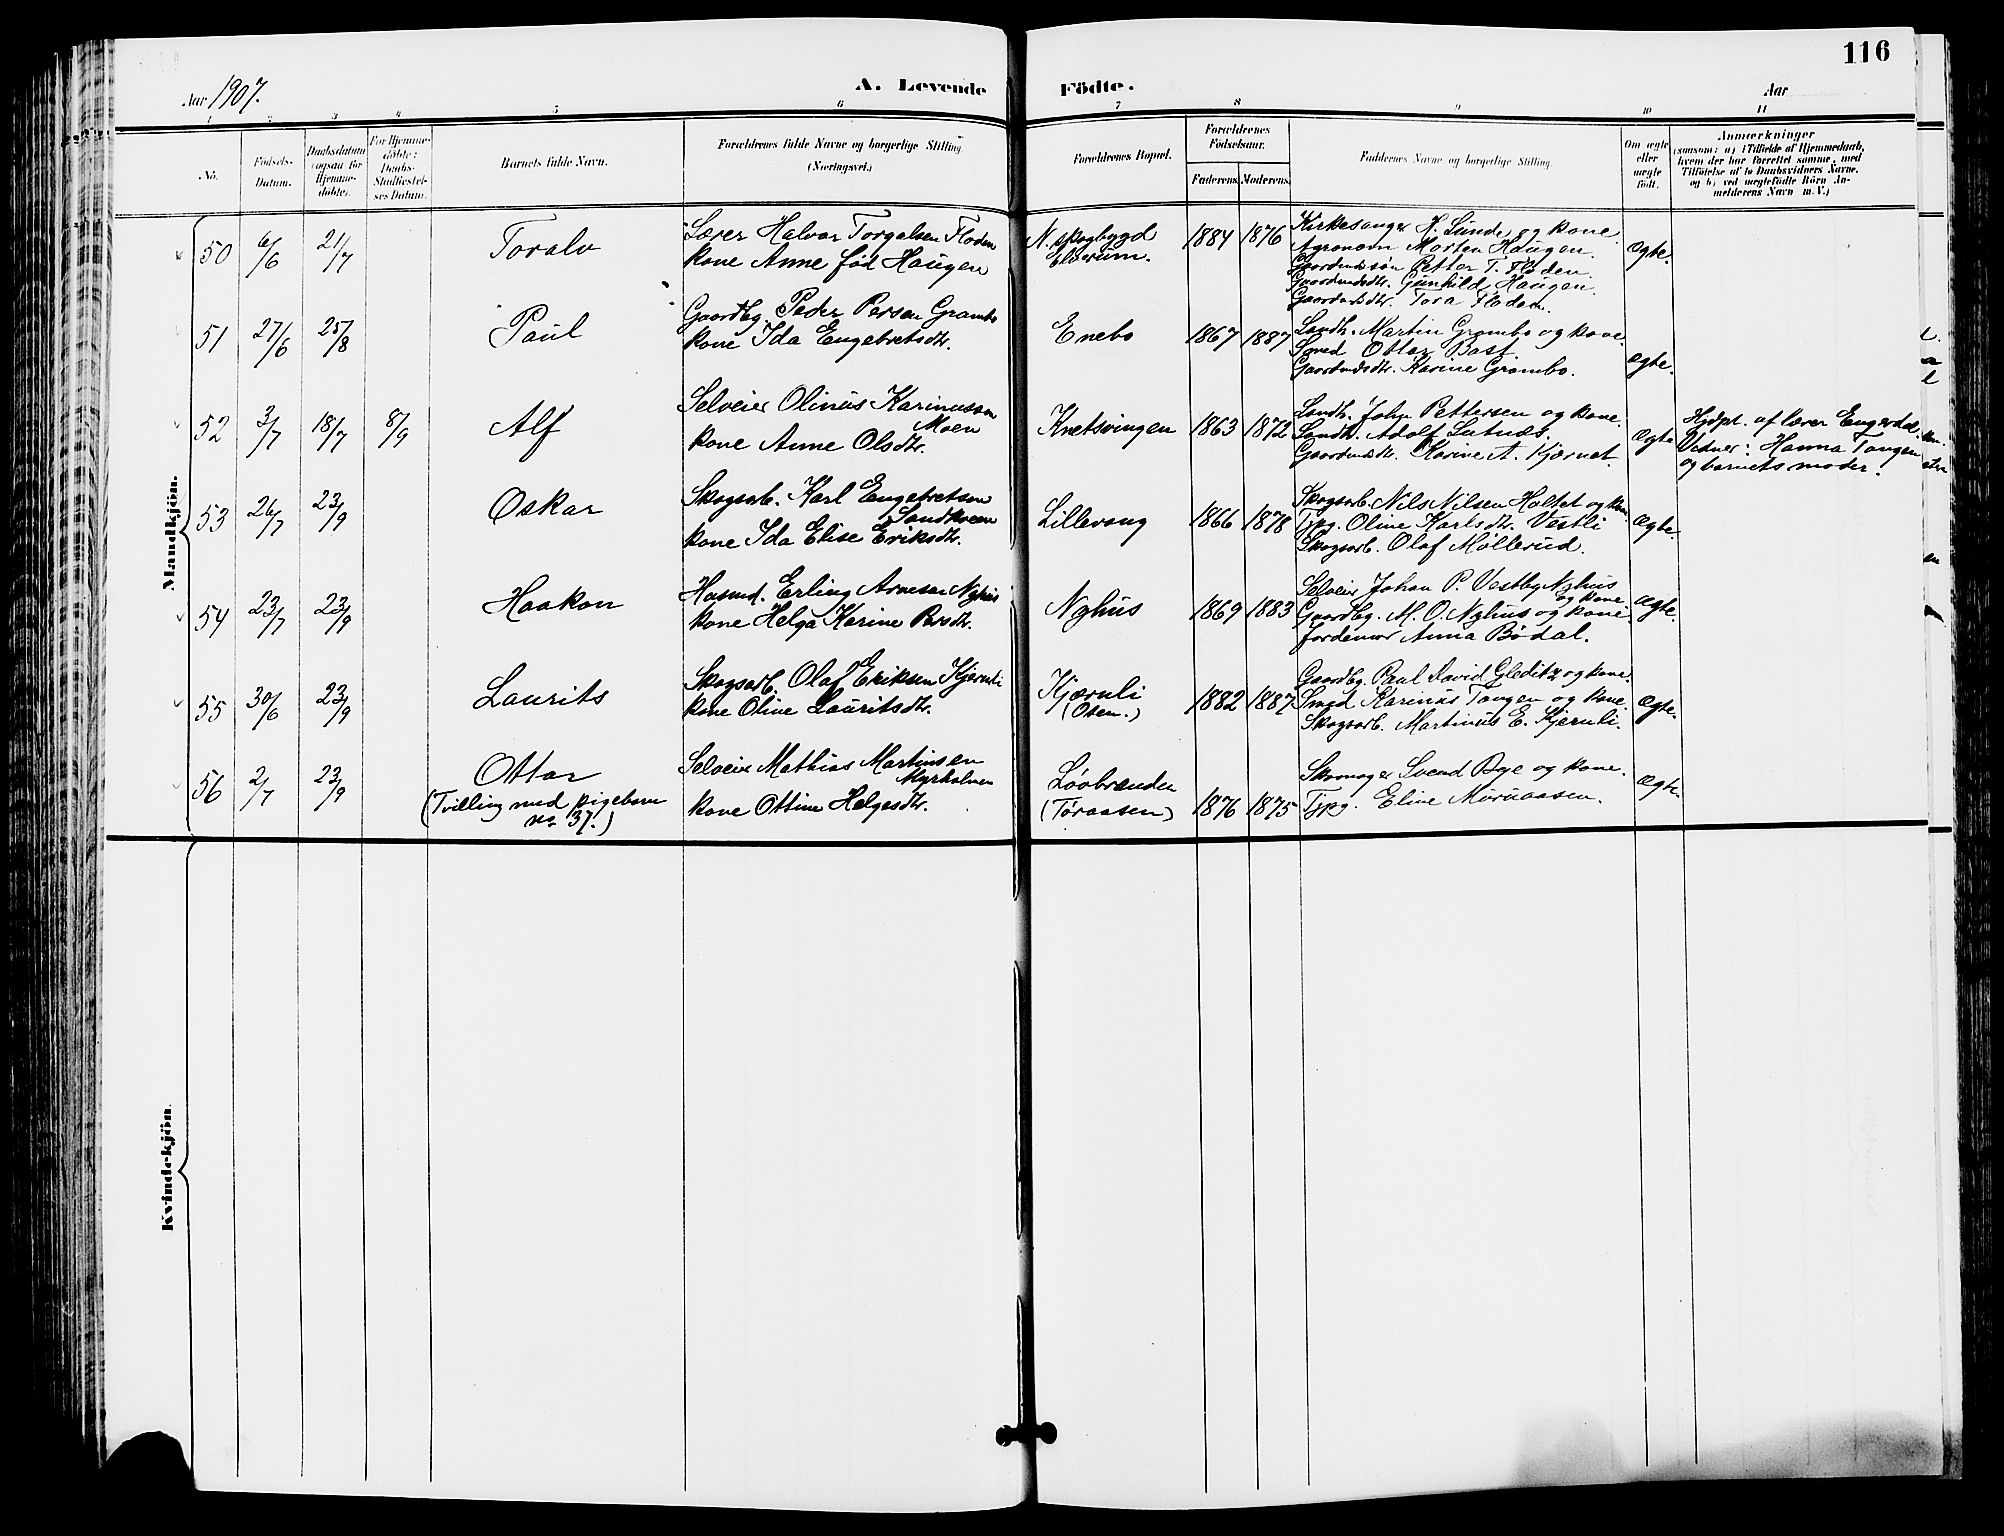 116
Aar 1907.
A. Levende Födte.
Aar
1 2 3 4 5 6 7 8 9 10 11
No.
Födsels-
Datum.
Daabsdatum
(ogsaa for
Hjemme-
döbte).
For Hjemme-
döbte:
Daabs-
Stadfæstel-
ses Datum.
Barnets fulde Navn.
Forældrenes fulde Navne og borgerlige Stilling
(Næringsvei.)
Forældrenes Bopæl.
Forældrenes
Födselsaar.
Faderens. Moderens.
Faddernes Navne og borgerlige Stilling.
Om ægte
eller
uægte
födt.
Anmærkninger
(saasom: a) i Tilfælde af Hjemmedaab,
hvem der har forrettet samme, med
Tilföielse af to Daabsvidners Navne.
og b) ved uægtefödte Börn An-
melderens Navn m. V.)
Mandkjön.
50 6/6 21/7 Toralv
Lærer Halvor Torgalsen Floden
kone Anne fød Haugen
N. Skogbygd
Elverum.
1884 1876
Kirkesanger H. Sunde og kone.
Agronom Morten Haugen.
Gaardmdssøn Petter T. Floden.
Gaardmdsdtr. Gunhild Haugen.
Gaardmdsdtr. Tora Floden.
Ægte.
51 27/6 25/8 Paul
Gaardbg. Peder Persen Grambo
kone Ida Engebretsdtr.
Enebo
1867 1887
Landh. Martin Grambo og kone.
Smed Ottar Bast.
Gaardmdsdtr. Karine Grambo.
Ægte.
52 3/7 18/7 8/9 Alf
Selveier Olinus Karinussen
Moen
kone Anne Olsdtr.
Knetsvingen
1863 1872
Landh. John Pettersen og kone.
Landh. Adolf Lutnæs.
Gaardmdsdtr. Karine A. Kjernet.
Ægte
Hjdpt. af lærer Engerdal.
Vidner: Hanna Tangen
og barnets moder.
53 26/7 23/9 Oskar
Skogsarb. Karl Engebretsen
Sandkveen
kone Ida Elise Eriksdtr.
Lillevang
1866 1878
Skogsarb. Nils Nilsen Holtet og kone
Tjpg. Oline Karlsdtr. Vestli
Skogsarb. Olaf Møllerud.
Ægte.
54 23/7 23/9 Haakon
Husmd. Erling Arnesen Nyhus
kone Helga Karine Persdtr.
Nyhus
1869 1883
Selveier Johan P. Vestby Nyhus
og kone.
Gaardbg. M. O. Nyhus og kone.
Jordemor Anna Bødal.
Ægte.
55 30/6 23/9 Laurits
Skogsarb. Olaf Eriksen Kjærnli
kone Oline Lauritsdtr.
Kjærnli
(Osen.)
1882 1887
Gaardbg. Paul David Gleditz og kone.
Smed Karinus Tangen og kone.
Skogsarb. Martinus E. Kjernli.
Ægte.
56 2/7 23/9 Ottar
(Tvilling med pigebarn
no. 37.)
Selveier Mathias Martinsen
Myrholmen
kone Ottine Helgesdtr.
Løvbrænden
(Tøraasen)
1876 1875
Skomager Svend Bye og kone.
Tjpg. Eline Mornaasen.
Ægte.
Kvindekjön.